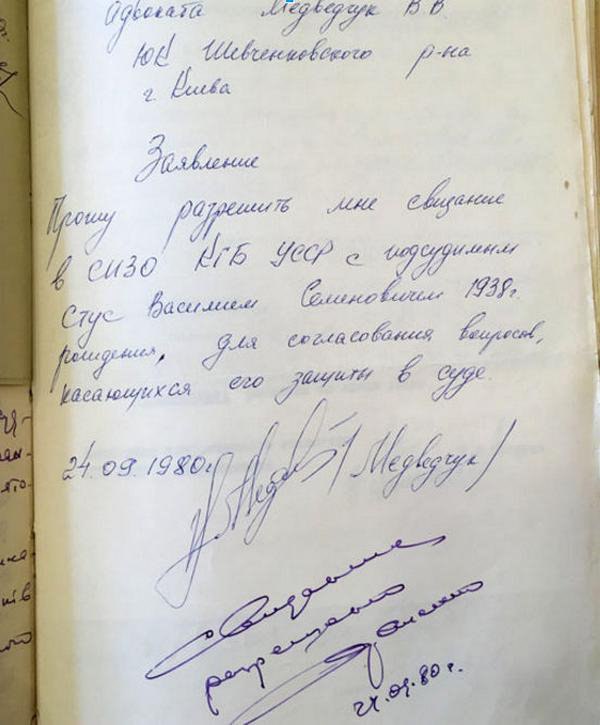 Адвоката Медведчук В.В.
ЮК Шевченковского р-на
г. Киева
Заявление
Прошу разрешить мне свидание
в СИЗО КГБ УССР с подсудимым
Стус Василием Семеновичем 1938г.
рождения, для согласования вопросов,
касающихся его защиты в суде.
24.09.1980г. /Медведчук/
Свидание
разрешено
24.09.80г.